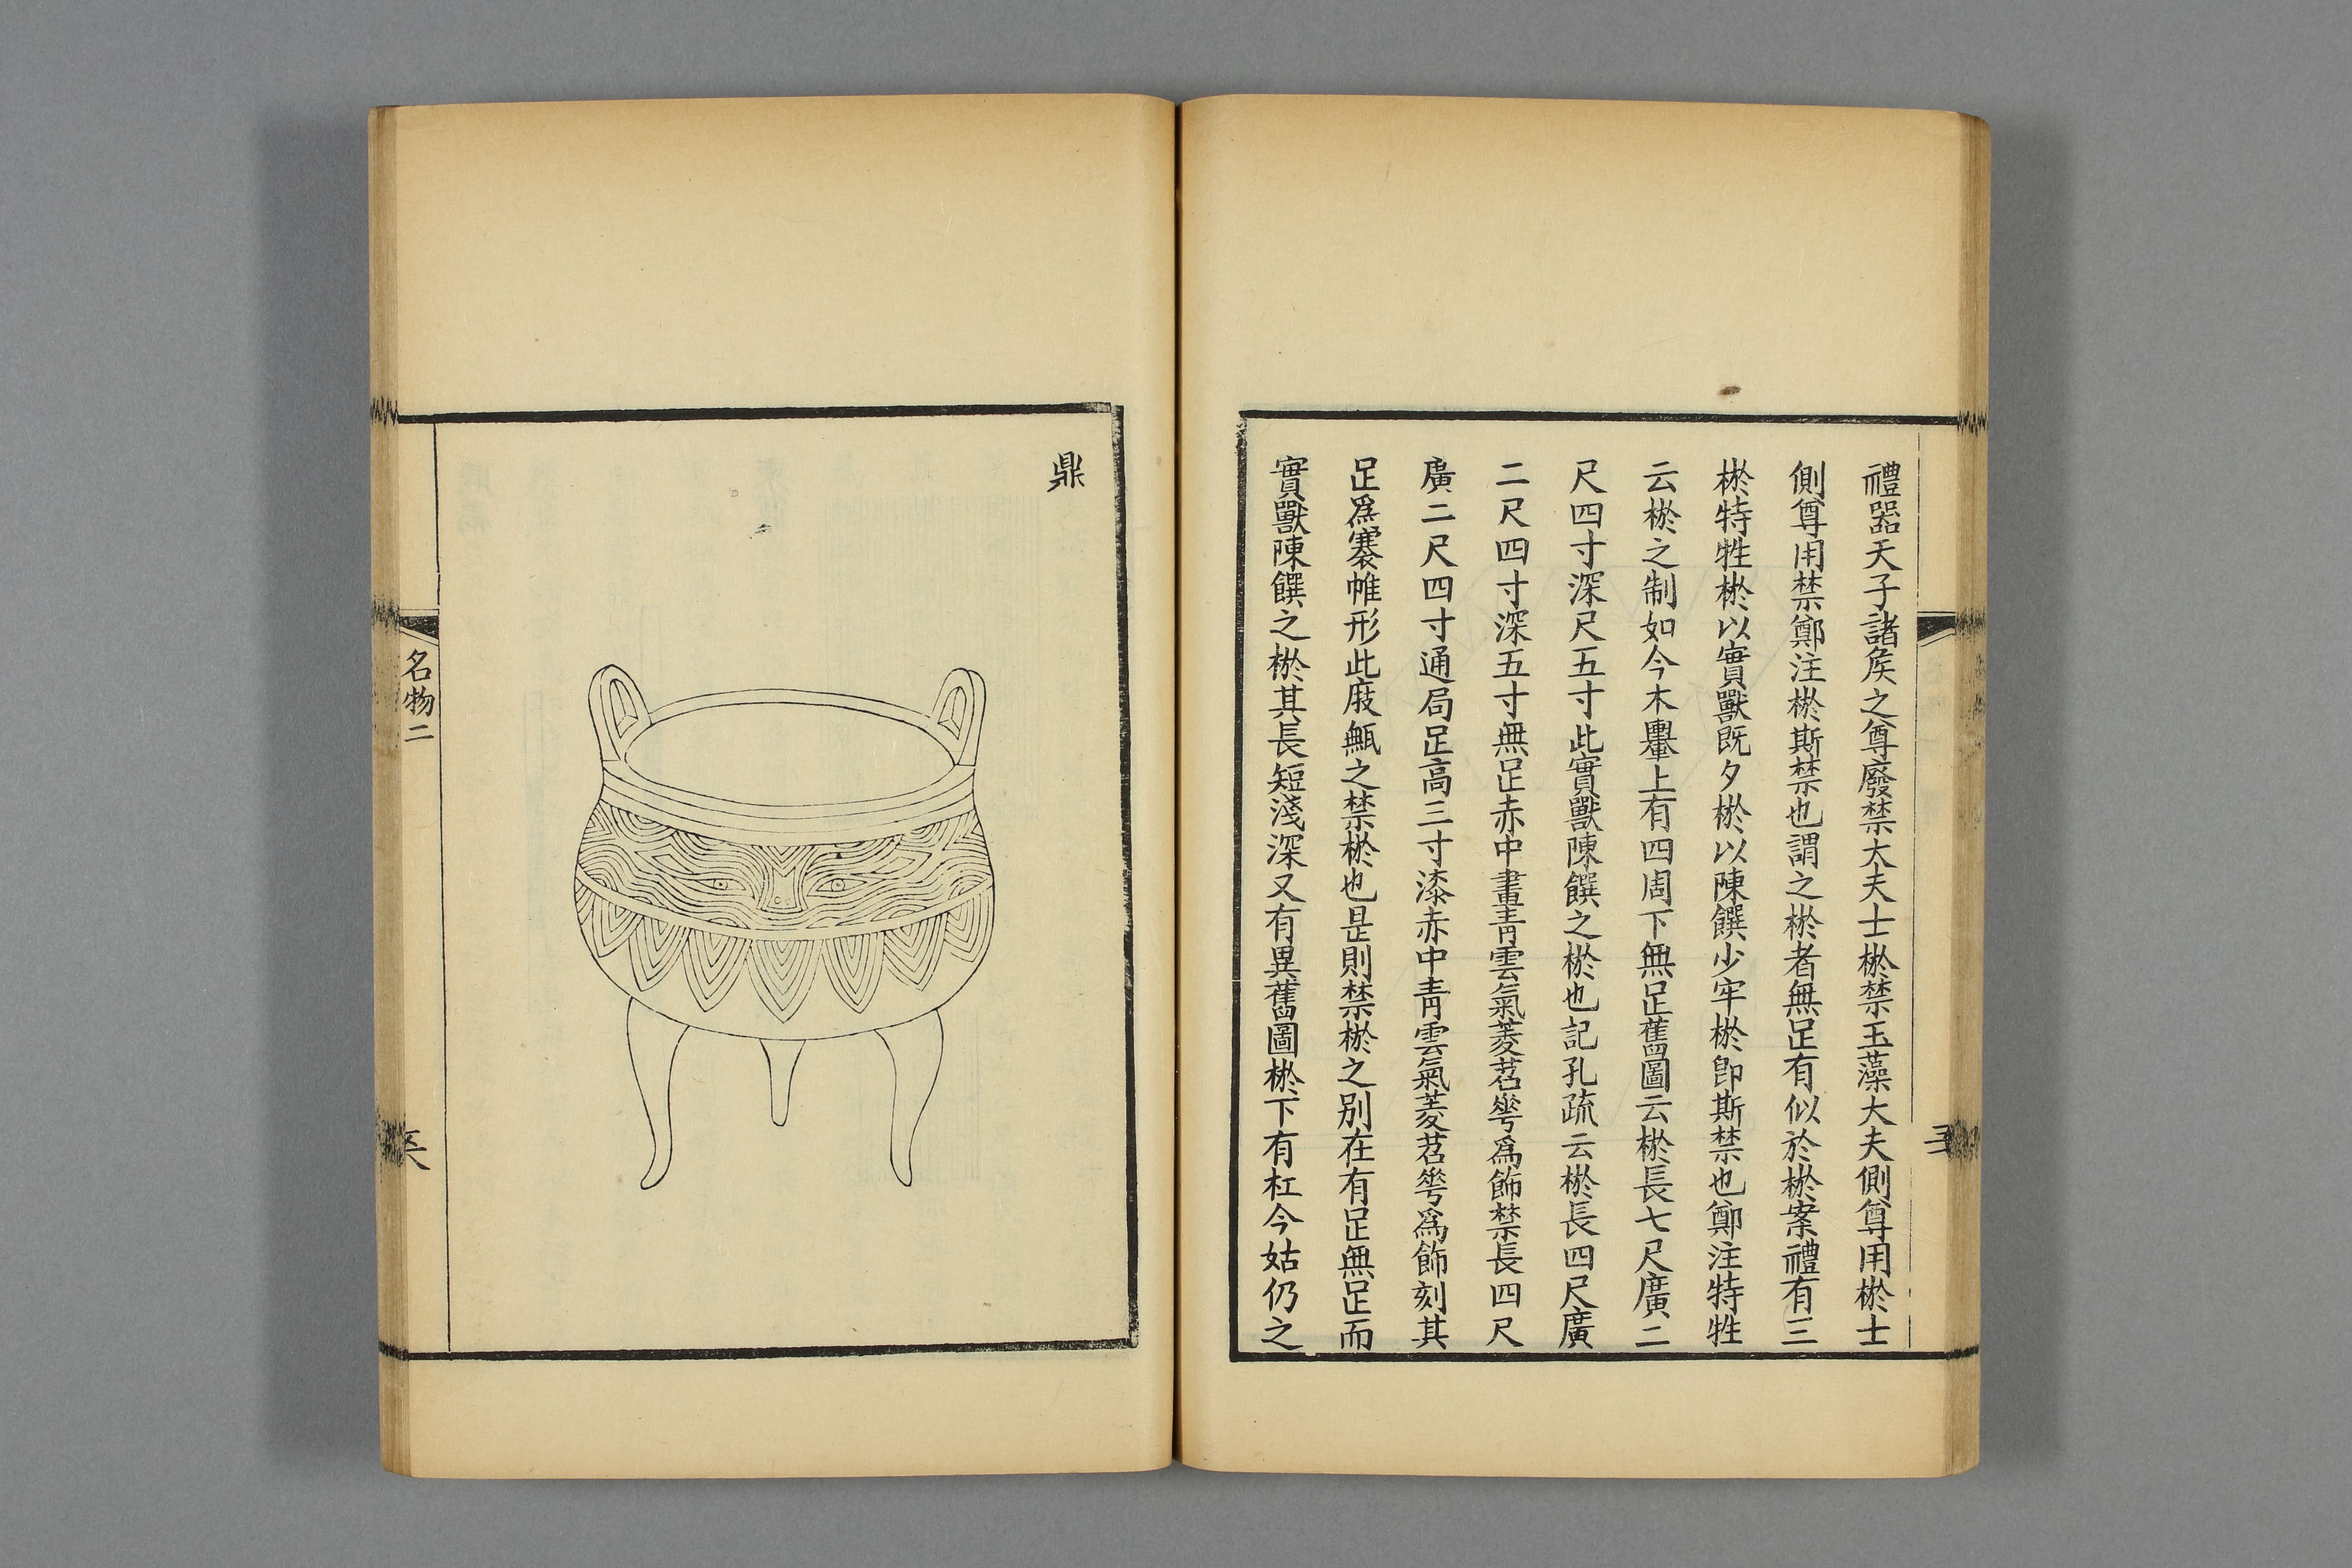 禮器天子諸矦之尊廢禁大夫士棜禁玉藻大夫側尊用棜士
側尊用禁鄭注棜斯禁也謂之棜者無足有似於棜案禮有三
棜特牲棜以實獸既夕棜以陳饌少牢棜卽斯禁也鄭注特牲
云棜之制如今木轝上有四周下無足舊圖云棜長七尺廣二
尺四寸深尺五寸此實獸陳饌之棜也記孔疏云棜長四尺廣
二尺四寸深五寸無足赤中畫靑雲氣菱苕華爲飾禁長四尺
廣二尺四寸通局足高三寸漆赤中靑雲氣菱苕華爲飾刻其
足爲褰帷形此庪甒之禁棜也是則禁棜之別在有足無足而
實獸陳饌之棜其長短淺深又有異舊圖棜下有杠今姑仍之
鼎
名物二